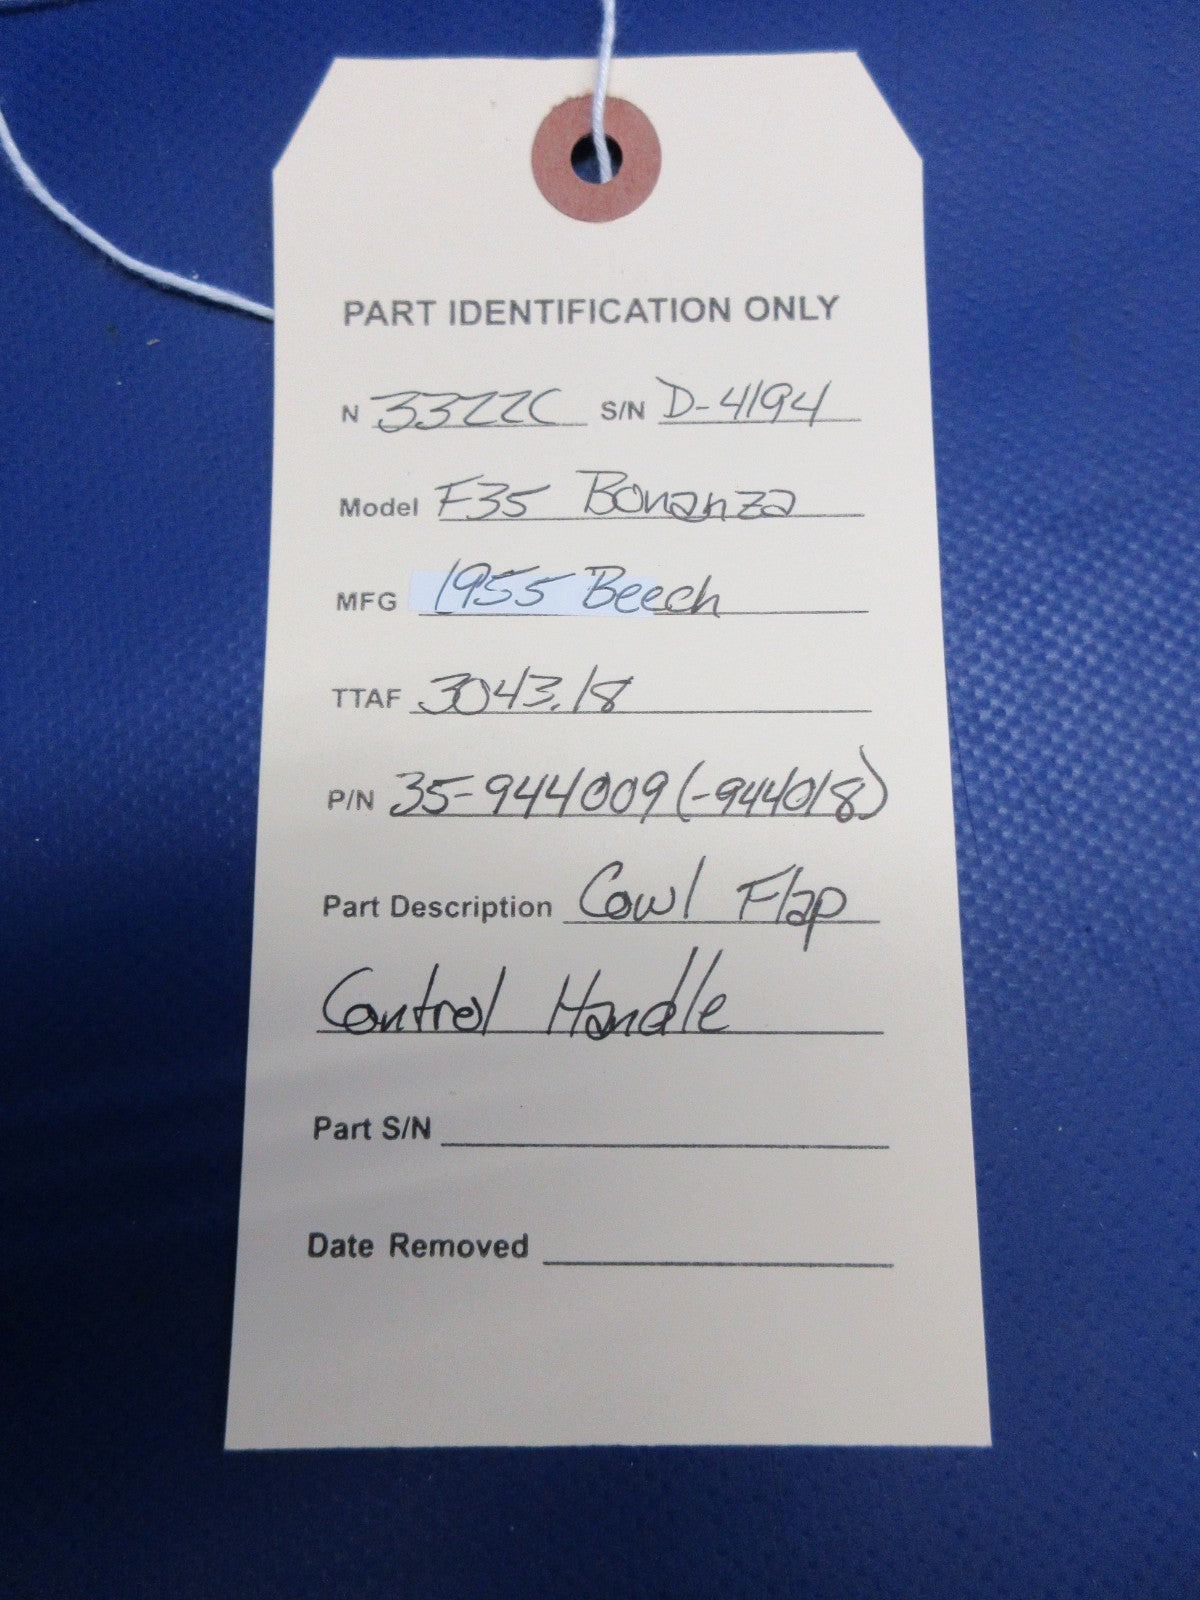 PART IDENTIFICATION ONLY
N 3322C S/N D-4194
Model F35 Bonanza
MFG 1955 Beech
TTAF 3043.18
P/N 35-944009 (-944018)
Part Description Cowl Flap
Control Handle
Part S/N
Date Removed